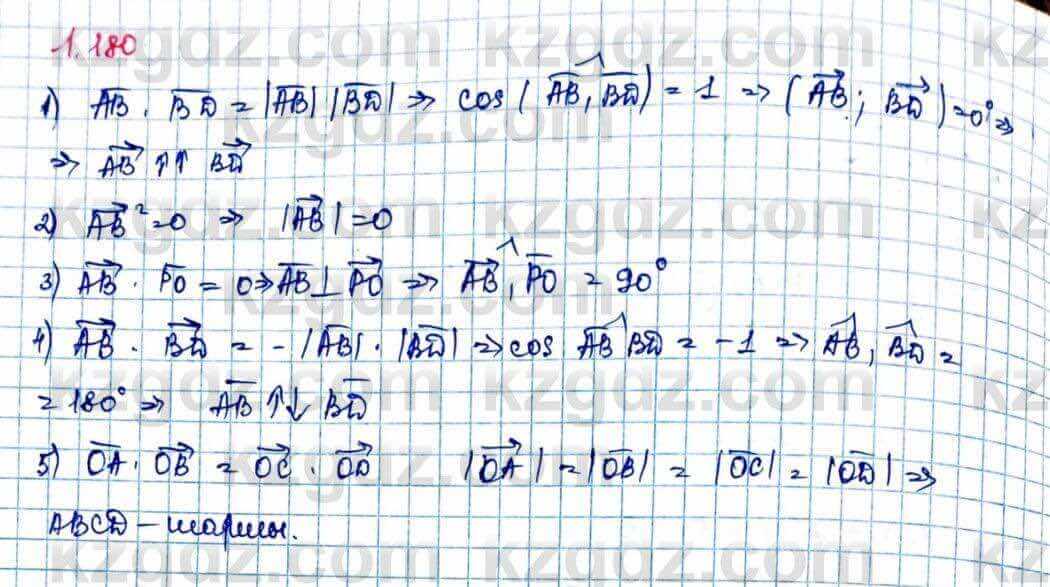 1.180
1) AB · BD = |AB| |BD| ⇒ cos(AB, BD) = 1 ⇒ (AB; BD) = 0° ⇒
⇒ AB ↑↑ BD
2) AB² = 0 ⇒ |AB| = 0
3) AB · PO = 0 ⇒ AB ⊥ PO ⇒ AB, PO = 90°
4) AB · BD = -|AB| · |BD| ⇒ cos AB BD = -1 ⇒ AB, BD =
= 180° ⇒ AB ↑↓ BD
5) OA · OB = OC · OD |OA| = |OB| = |OC| = |OD| ⇒
ABCD –
kzgdz.com